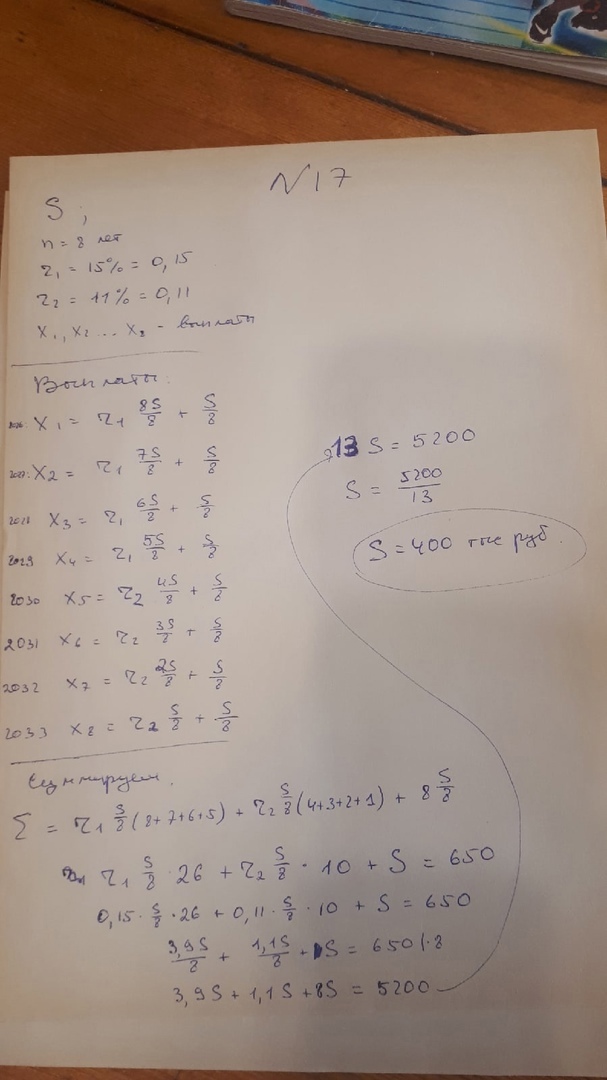 N17
S;
n = 8 лет
r₁ = 15% = 0,15
r₂ = 11% = 0,11
x₁, x₂ ... x₈ - выплаты
Выплаты:
2026: x₁ = r₁ 8S/8 + S/8
2027: x₂ = r₁ 7S/8 + S/8
2028 x₃ = r₁ 6S/8 + S/8
2029 x₄ = r₁ 5S/8 + S/8
2030 x₅ = r₂ 4S/8 + S/8
2031 x₆ = r₂ 3S/8 + S/8
2032 x₇ = r₂ 2S/8 + S/8
2033 x₈ = r₂ S/8 + S/8
Суммируем.
Σ = r₁ S/8 (8+7+6+5) + r₂ S/8 (4+3+2+1) + 8 S/8
r₁ S/8 · 26 + r₂ S/8 · 10 + S = 650
0,15 · S/8 · 26 + 0,11 · S/8 · 10 + S = 650
3,9S/8 + 1,1S/8 + S = 650 |·8
3,9S + 1,1S + 8S = 5200
13 S = 5200
S = 5200/13
S = 400 тыс руб.